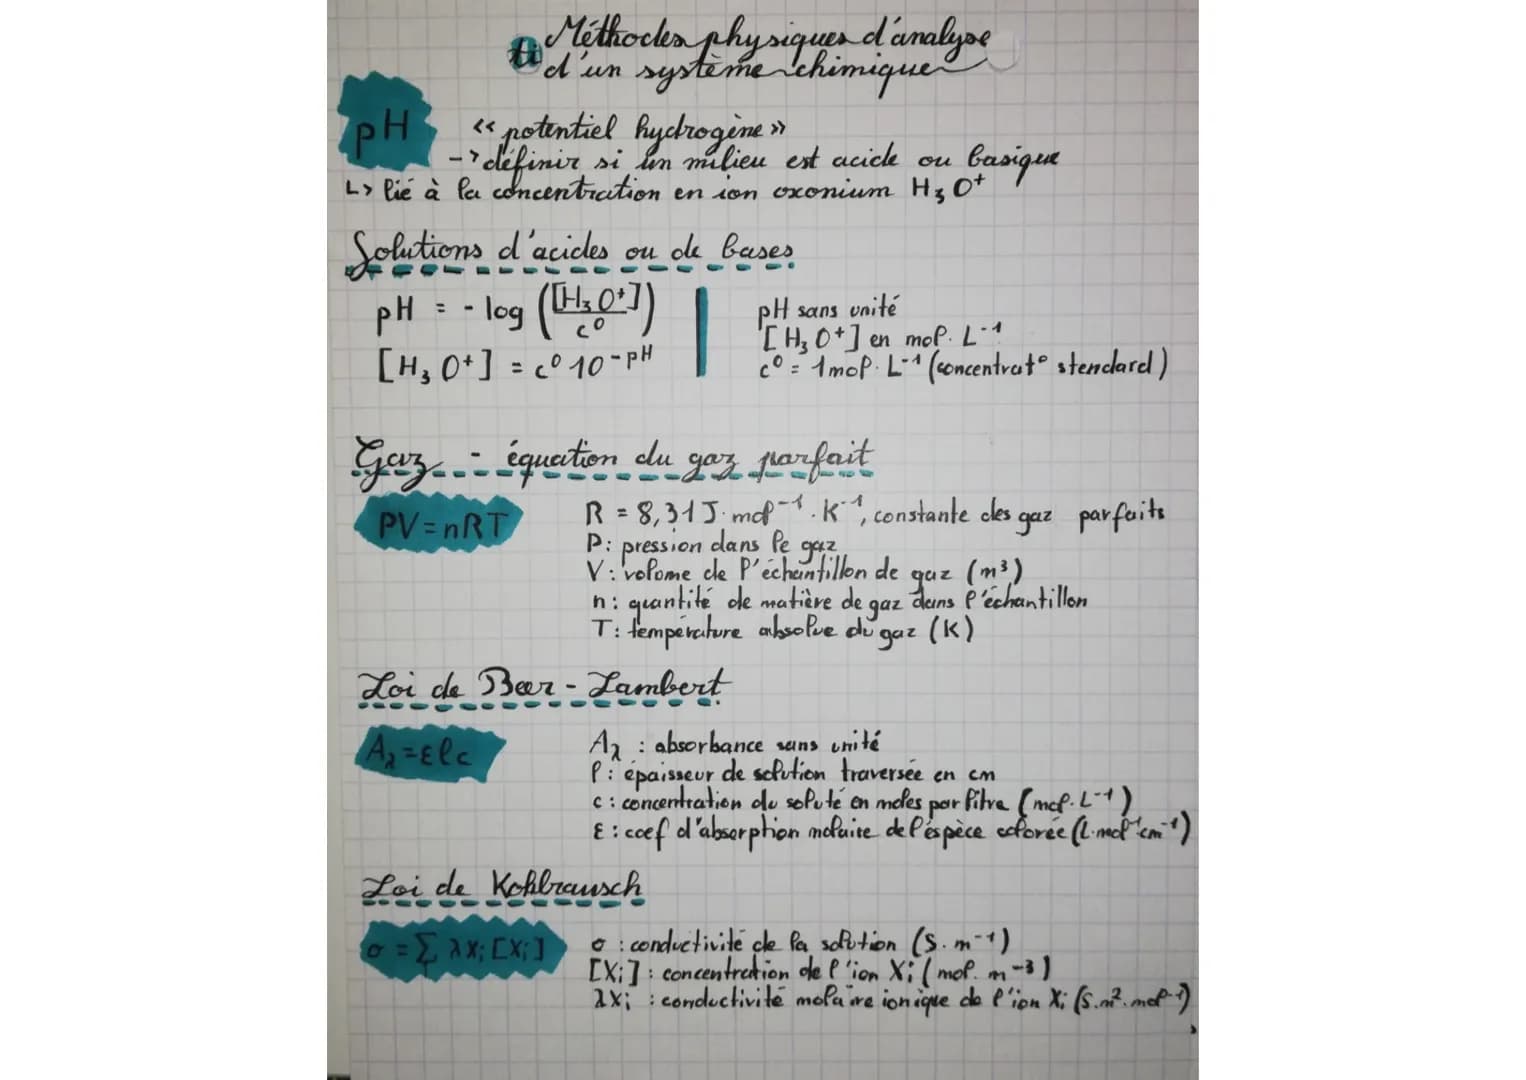 Méthodes physiques d'analyse
d'un système chimique
pH
<< potentiel hydrogène >>
-> définir si un milieu est acide ou basique
L> lié à la concentration en ion oxonium H₃O⁺
Solutions d'acides ou de bases
pH = - log ([H₃O⁺]/c⁰)
[H₃O⁺] = c⁰ 10⁻ᵖᴴ
pH sans unité
[H₃O⁺] en mol. L⁻¹
c⁰ = 1mol. L⁻¹ (concentrat° standard)
Gaz - équation du gaz parfait
PV=nRT
R = 8,31 J. mol⁻¹. K⁻¹, constante des gaz parfaits
P: pression dans le gaz
V: volome de l'échantillon de gaz (m³)
n: quantité de matière de gaz dans l'échantillon
T: température absolue du gaz (K)
Loi de Beer - Lambert
A_λ=εlc
A_λ : absorbance sans unité
l: épaisseur de solution traversée en cm
c: concentration du soluté en moles par litre (mol. L⁻¹)
ε: coef d'absorption molaire de l'espèce colorée (L.mol⁻¹cm⁻¹)
Loi de Kohlrausch
σ = Σ λXi [Xi]
σ : conductivité de la solution (S. m⁻¹)
[Xi] : concentration de l'ion Xi (mol. m⁻³)
λXi : conductivité molaire ionique de l'ion Xi (S.m².mol⁻¹)